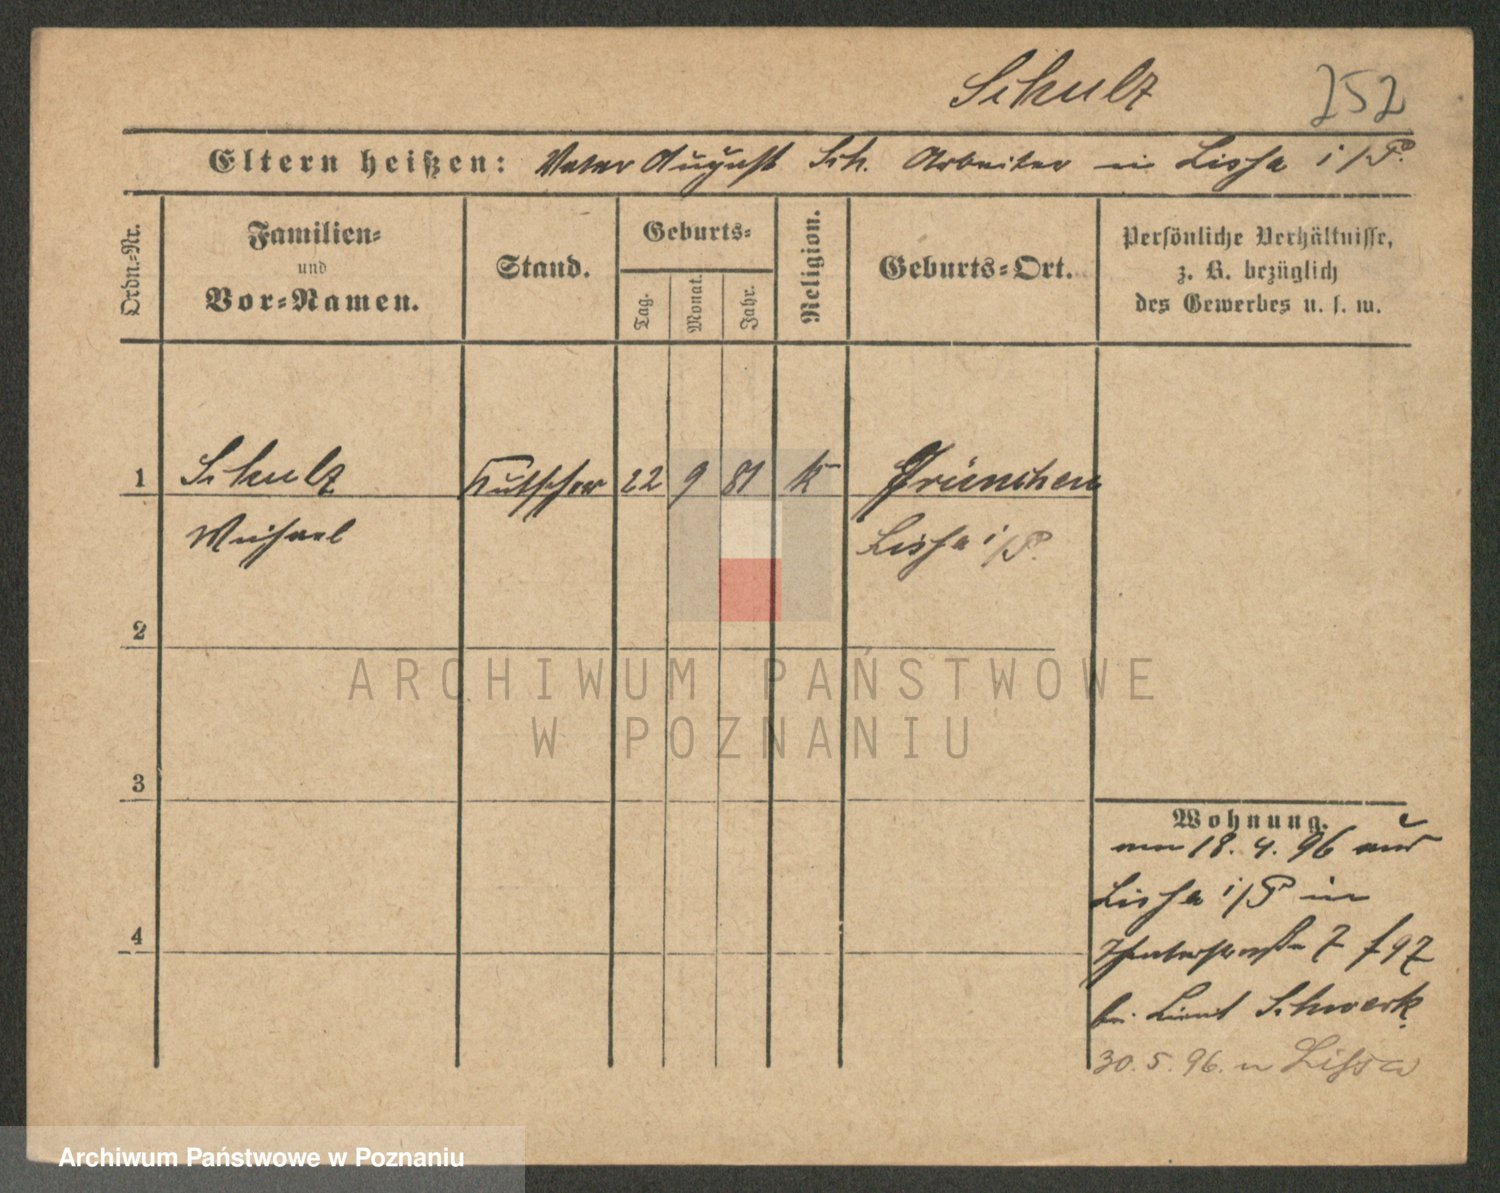 Schulz
252
Eltern heißen: Vater August Sch. Arbeiter in Lissa i/P.
Ordn.-Nr.
Familien-
und
Vor-Namen.
Stand.
Geburts-
Tag.
Monat.
Jahr.
Religion.
Geburts-Ort.
Persönliche Verhältnisse,
z. B. bezüglich
des Gewerbes u. s. w.
1 Schulz Kutscher 22 9 81 K Prünchen
Michael Lissa i/P.
2
3
4
Wohnung.
am 18. 4. 96 aus
Lissa i/P in
Theaterstraße 7 f 97
bei Lieut Schwerk
30. 5. 96. n Lissa
ARCHIWUM PAŃSTWOWE
W POZNANIU
Archiwum Państwowe w Poznaniu